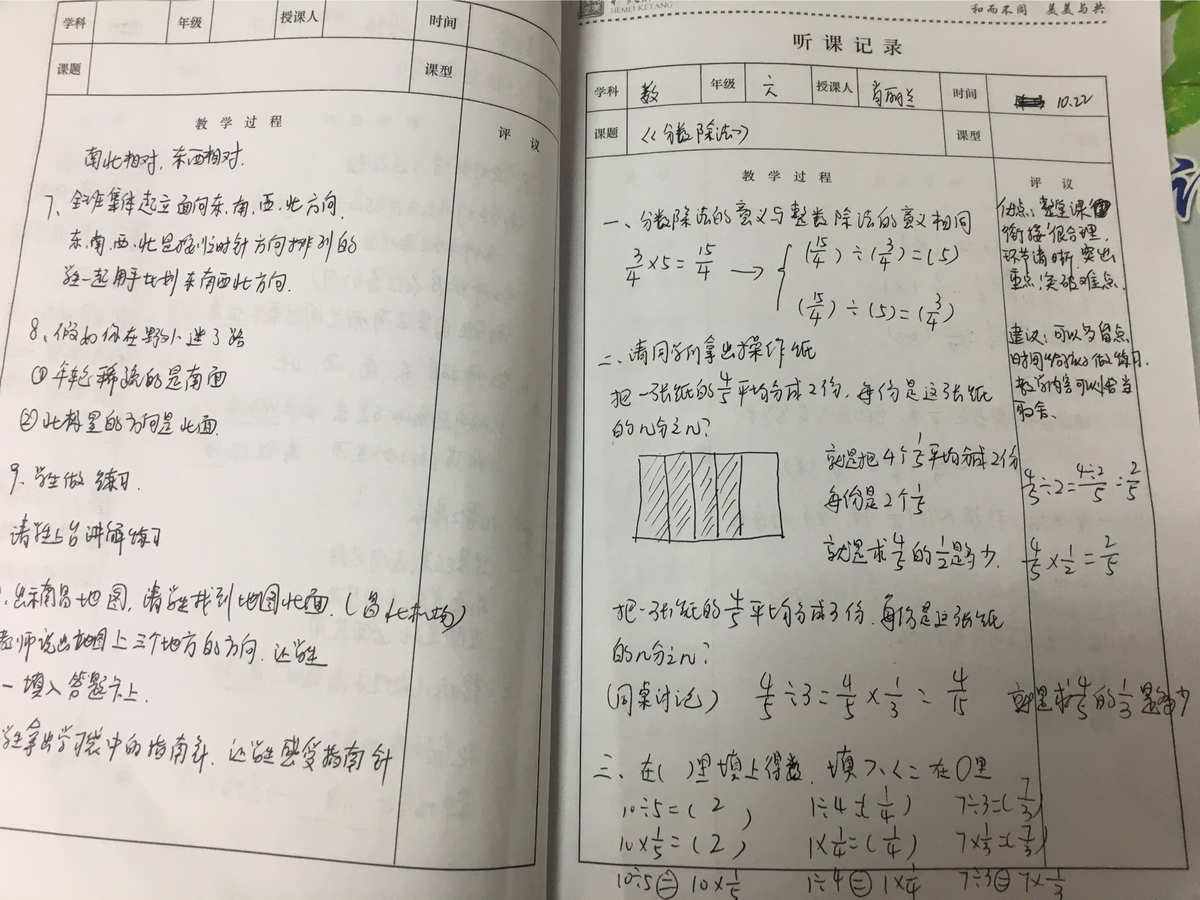 学科 年级 授课人 时间
课题 课型
教学过程 评议
南北相对，东西相对.
7、全班集体起立面向东、南、西、北方向.
东、南、西、北是按顺时针方向排列的
学生一起用手比划东南西北方向.
8、假如你在野外迷了路
① 年轮稀疏的是南面
② 北极星的方向是北面.
9、学生做练习.
请学生上台讲解练习
出示南昌地图，请学生找到地图北面.(昌北机场)
老师说出地图上三个地方的方向.让学生
一填入答题卡上.
学生拿出学习袋中的指南针.让学生感受指南针
HEMEI KETANG
和而不同 美美与共
听课记录
学科 数 年级 六 授课人 肖丽兰 时间 10.22
课题 《分数除法》 课型
教学过程 评议
一、分数除法的意义与整数除法的意义相同
3/4×5=15/4 → { (15/4)÷(3/4)=(5)
(15/4)÷(5)=(3/4)
二、请同学们拿出操作纸
把一张纸的4/5平均分成2份，每份是这张纸
的几分之几?
就是把4个1/5平均分成2份
每份是2个1/5
就是求4/5的1/2是多少.
把一张纸的4/5平均分成3份，每份是这张纸
的几分之几?
(同桌讨论) 4/5÷3=4/5×1/3=4/15 就是求4/5的1/3是多少
三、在( )里填上得数，填>、<、=在○里
10÷5=(2) 1÷4=(1/4) 7÷3=(7/3)
10×1/5=(2) 1×1/4=(1/4) 7×1/3=(7/3)
10÷5㊀10×1/5 1÷4㊀1×1/4 7÷3㊀7×1/3
优点：整堂课
衔接很合理，
环节清晰，突出
重点，突破难点.
建议：可以多留点
时间给孩子做练习.
教学内容可以恰当
取舍.
4/5÷2=4÷2/5=2/5
4/5×1/2=2/5